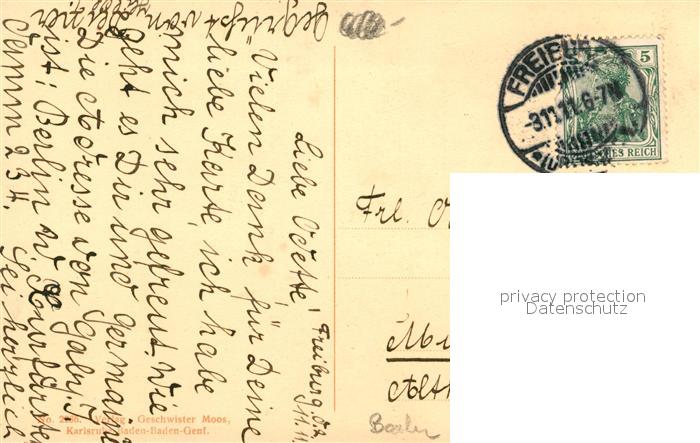 Freiburg,
Liebe Odette!
Vielen Dank für Deine
liebe Karte, ich habe
mich sehr gefreut. Wie
geht es Dir und Germaine
Die Adresse von Gaby
ist: Berlin W
234. Sei herzlich
gegrüsst von
No. Verlag Geschwister Moos,
Karlsruhe-Baden-Baden-Genf.
FREIBURG
-3.11.11.6-7N
5
REICH
Frl.
Basler
privacy protection
Datenschutz